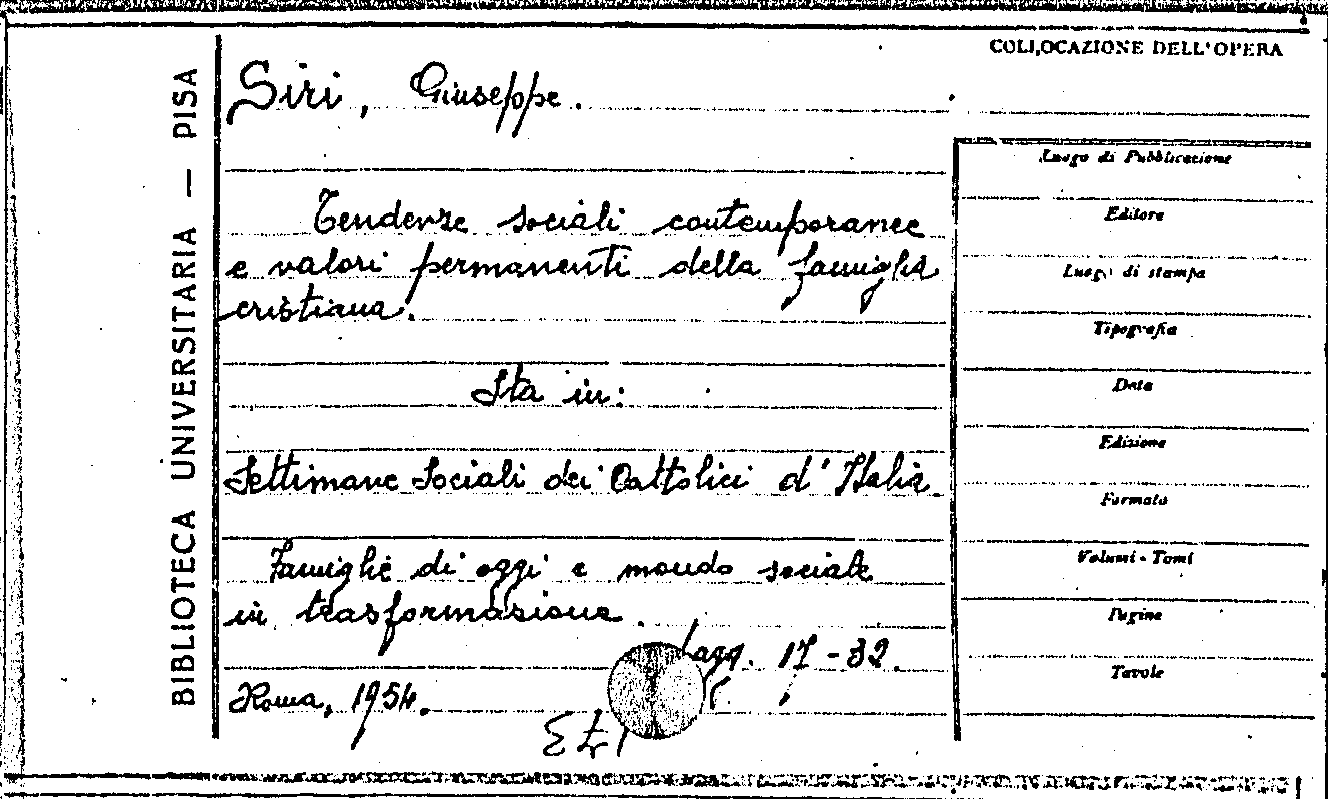 BIBLIOTECA UNIVERSITARIA — PISA
COLLOCAZIONE DELL'OPERA
Siri, Giuseppe.
Tendenze sociali contemporanee
e valori permanenti della famiglia
cristiana.
Sta in:
Settimane Sociali dei Cattolici d'Italia
Famiglie di oggi e mondo sociale
in trasformazione.
pagg. 17-32.
Roma, 1954.
Luogo di Pubblicazione
Editore
Luogo di stampa
Tipografia
Data
Edizione
Formato
Volumi - Tomi
Pagine
Tavole